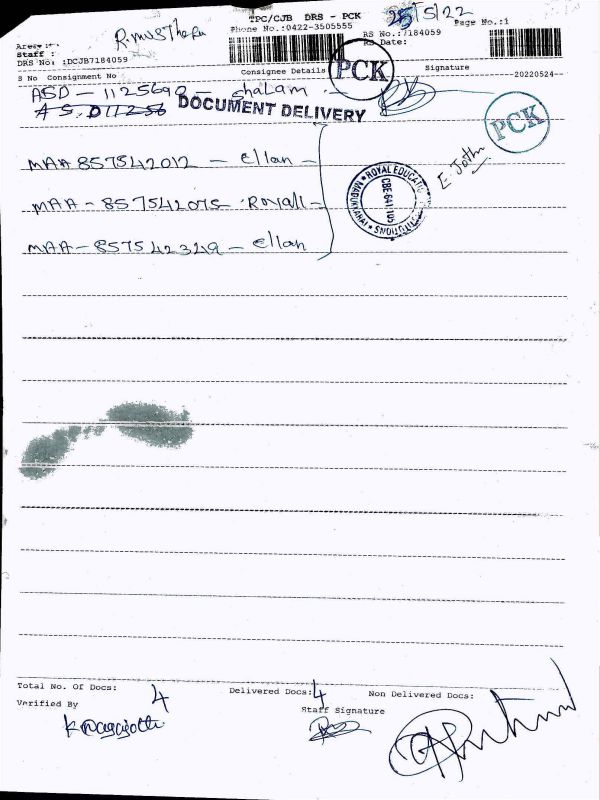 TPC/CJB DRS - PCK
25/5/22
Page No.:1
Phone No.:0422-3505555
RS No.:7184059
RS Date:
Staff :
DRS No: :DCJB7184059
S No Consignment No
Consignee Details
PCK
Signature
20220524
ASD - 11256
DOCUMENT DELIVERY
PCK
MAA 857542012 - Ellan -
MAA - 857542075 Royall -
MAA - 857542349 - Ellan
ROYAL EDUCATIONAL INSTITUTIONS
MADUKKARAI
CBE-641 105
E. Jothi
Total No. Of Docs: 4
Delivered Docs: 4
Non Delivered Docs:
Verified By
Staff Signature